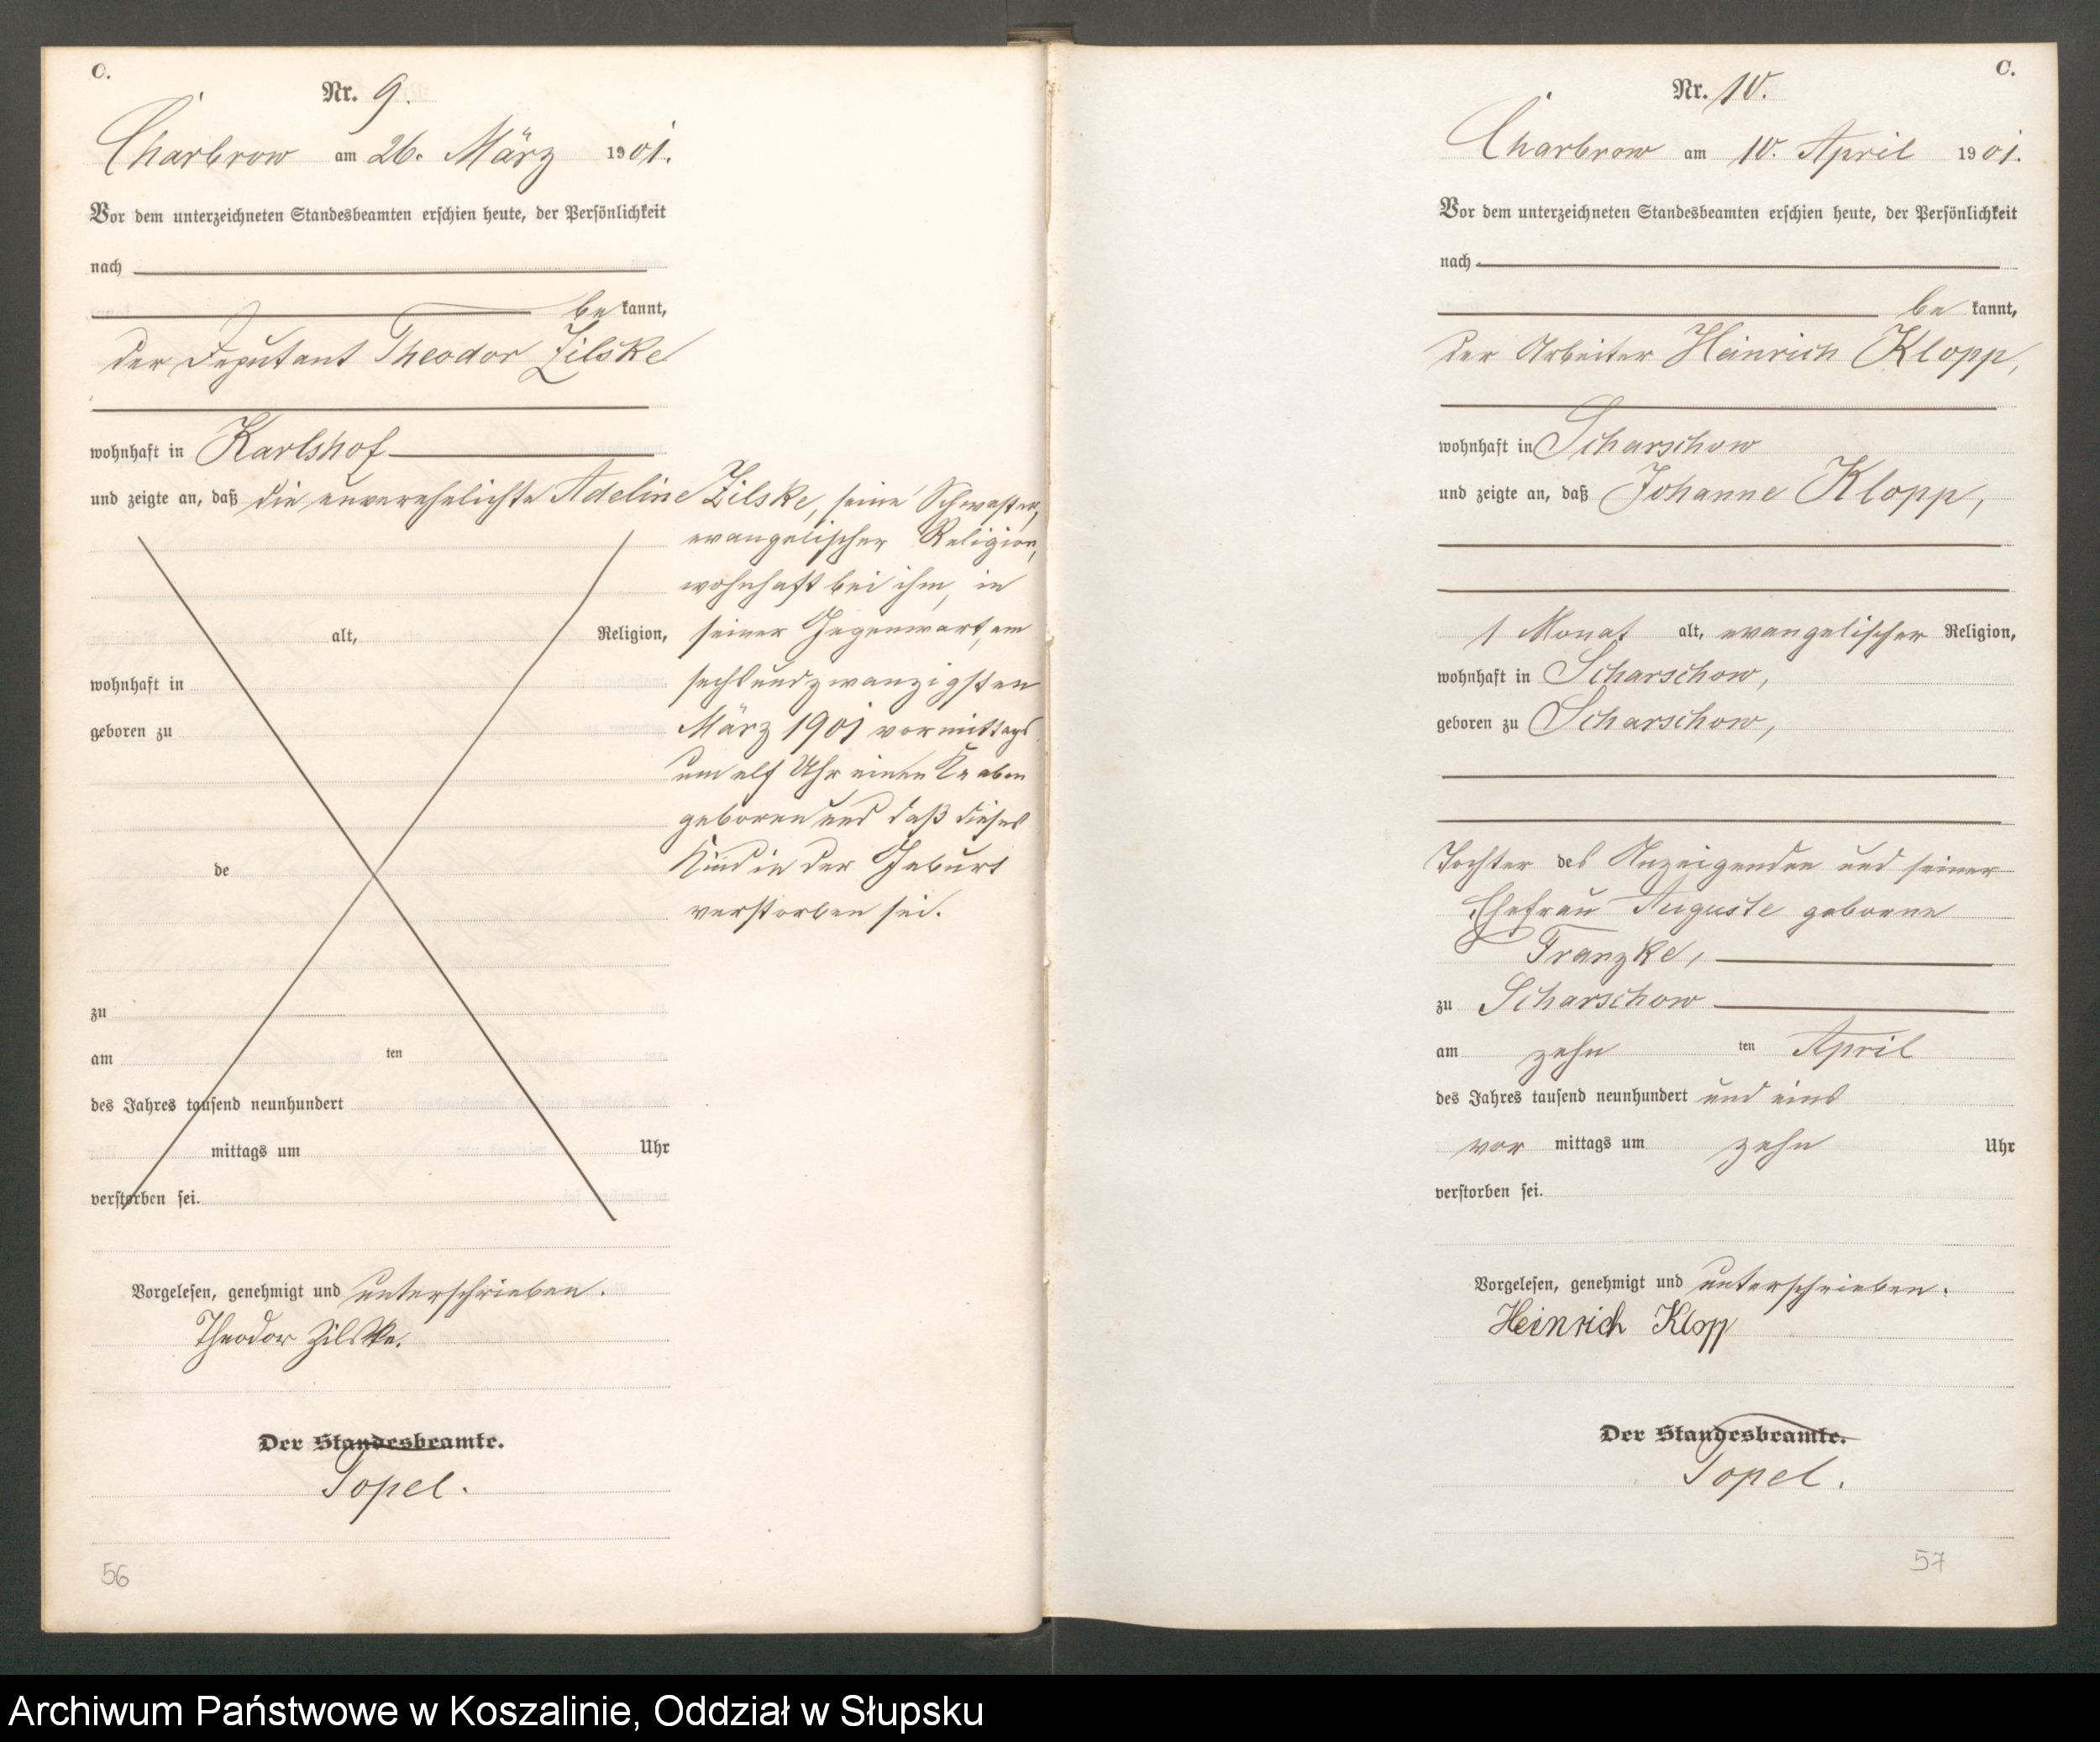 C.
Nr. 9.
Charbrow am 26. März 1901.
Vor dem unterzeichneten Standesbeamten erschien heute, der Persönlichkeit
nach
be kannt,
der Deputant Theodor Zilske
wohnhaft in Karlshof
und zeigte an, daß die unverehelichte Adeline Zilske, seine Schwester,
evangelischer Religion,
wohnhaft bei ihm, in
alt, Religion, seiner Gegenwart, am
wohnhaft in sechsundzwanzigsten
geboren zu März 1901 vormittags
um elf Uhr einen Knaben
geboren und daß dieses
de Kind in der Geburt
verstorben sei.
zu
am ten
des Jahres tausend neunhundert
mittags um Uhr
verstorben sei.
Vorgelesen, genehmigt und unterschrieben.
Theodor Zilske.
Der Standesbeamte.
Topel.
56
C.
Nr. 10.
Charbrow am 10. April 1901.
Vor dem unterzeichneten Standesbeamten erschien heute, der Persönlichkeit
nach
be kannt,
der Arbeiter Heinrich Klopp,
wohnhaft in Scharschow
und zeigte an, daß Johanne Klopp,
1 Monat alt, evangelischer Religion,
wohnhaft in Scharschow,
geboren zu Scharschow,
Tochter des Anzeigenden und seiner
Ehefrau Auguste geborene
Franzke,
zu Scharschow
am zehn ten April
des Jahres tausend neunhundert und eins
vor mittags um zehn Uhr
verstorben sei.
Vorgelesen, genehmigt und unterschrieben.
Heinrich Klopp
Der Standesbeamte.
Topel.
57
Archiwum Państwowe w Koszalinie, Oddział w Słupsku